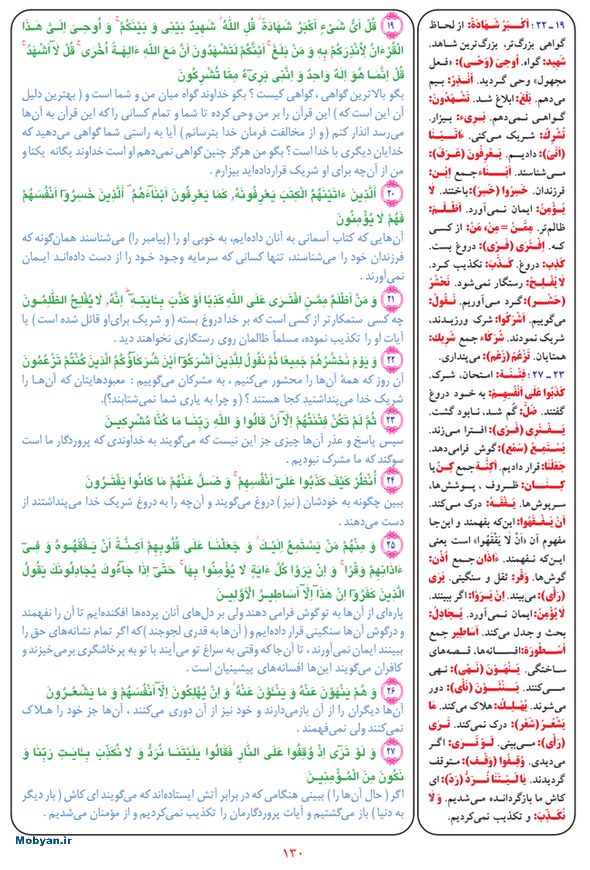 ۱۹ قُلْ أَىُّ شَىْءٍ أَكْبَرُ شَهَادَةً قُلِ اللَّهُ شَهِيدٌ بَيْنِى وَ بَيْنَكُمْ وَ أُوحِىَ إِلَىَّ هَذَا
الْقُرْءَانُ لِأُنْذِرَكُمْ بِهِ وَ مَنْ بَلَغَ أَئِنَّكُمْ لَتَشْهَدُونَ أَنَّ مَعَ اللَّهِ ءَالِهَةً أُخْرَى قُلْ لَا أَشْهَدُ
قُلْ إِنَّمَا هُوَ إِلَهٌ وَاحِدٌ وَ إِنَّنِى بَرِىءٌ مِمَّا تُشْرِكُونَ
بگو بالاترین گواهی ، گواهی کیست ؟ بگو خداوند گواه میان من و شما است و ( بهترین دلیل
آن این است که ) این قرآن را بر من وحی کرده تا شما و تمام کسانی را که این قرآن به آن‌ها
می‌رسد انذار کنم ( و از مخالفت فرمان خدا بترسانم ) آیا به راستی شما گواهی می‌دهید که
خدایان دیگری با خدا است ؟ بگو من هرگز چنین گواهی نمی‌دهم او است خداوند یگانه یکتا و
من از آن‌چه برای او شریک قرارداده‌اید بیزارم .
۲۰ الَّذِينَ ءَاتَيْنَهُمُ الْكِتَبَ يَعْرِفُونَهُ كَمَا يَعْرِفُونَ أَبْنَاءَهُمْ الَّذِينَ خَسِرُوا أَنْفُسَهُمْ
فَهُمْ لَا يُؤْمِنُونَ
آن‌هایی که کتاب آسمانی به آنان داده‌ایم، به خوبی او را (پیامبر را) می‌شناسند همان‌گونه که
فرزندان خود را می‌شناسند، تنها کسانی که سرمایه وجود خود را از دست داده‌اند ایمان
نمی‌آورند .
۲۱ وَ مَنْ أَظْلَمُ مِمَّنِ افْتَرَى عَلَى اللَّهِ كَذِبًا أَوْ كَذَّبَ بِـَايَتِهِ إِنَّهُ لَا يُفْلِحُ الظَّلِمُونَ
چه کسی ستمکارتر از کسی است که بر خدا دروغ بسته ( و شریک برای‌او قائل شده است ) یا
آیات او را تکذیب نموده، مسلماً ظالمان روی رستگاری نخواهند دید .
۲۲ وَ يَوْمَ نَحْشُرُهُمْ جَمِيعًا ثُمَّ نَقُولُ لِلَّذِينَ أَشْرَكُوا أَيْنَ شُرَكَاؤُكُمُ الَّذِينَ كُنْتُمْ تَزْعُمُونَ
آن روز که همهٔ آن‌ها را محشور می‌کنیم ، به مشرکان می‌گوییم : معبودهایتان که آن‌ها را
شریک خدا می‌پنداشتید کجا هستند ؟ ( و چرا به یاری شما نمی‌شتابند؟).
۲۳ ثُمَّ لَمْ تَكُنْ فِتْنَتُهُمْ إِلَّا أَنْ قَالُوا وَ اللَّهِ رَبِّنَا مَا كُنَّا مُشْرِكِينَ
سپس پاسخ و عذر آن‌ها چیزی جز این نیست که می‌گویند به خداوندی که پروردگار ما است
سوگند که ما مشرک نبودیم .
۲۴ أُنْظُرْ كَيْفَ كَذَبُوا عَلَى أَنْفُسِهِمْ وَ ضَلَّ عَنْهُمْ مَا كَانُوا يَفْتَرُونَ
ببین چگونه به خودشان ( نیز ) دروغ می‌گویند و آن‌چه را به دروغ شریک خدا می‌پنداشتند از
دست می‌دهند .
۲۵ وَ مِنْهُمْ مَنْ يَسْتَمِعُ إِلَيْكَ وَ جَعَلْنَا عَلَى قُلُوبِهِمْ أَكِنَّةً أَنْ يَفْقَهُوهُ وَ فِى
ءَاذَانِهِمْ وَقْرًا وَ إِنْ يَرَوْا كُلَّ ءَايَةٍ لَا يُؤْمِنُوا بِهَا حَتَّى إِذَا جَاءُوكَ يُجَادِلُونَكَ يَقُولُ
الَّذِينَ كَفَرُوا إِنْ هَذَا إِلَّا أَسَاطِيرُ الْأَوَّلِينَ
پاره‌ای از آن‌ها به تو گوش فرامی دهند ولی بر دل‌های آنان پرده‌ها افکنده‌ایم تا آن را نفهمند
و درگوش آن‌ها سنگینی قرار داده‌ایم و ( آن‌ها به قدری لجوجند ) که اگر تمام نشانه‌های حق را
ببینند ایمان نمی‌آورند ، تا آن‌جا که وقتی به سراغ تو می‌آیند با تو به پرخاشگری برمی‌خیزند و
کافران می‌گویند این‌ها افسانه‌های پیشینیان است .
۲۶ وَ هُمْ يَنْهَوْنَ عَنْهُ وَ يَنْـَوْنَ عَنْهُ وَ إِنْ يُهْلِكُونَ إِلَّا أَنْفُسَهُمْ وَ مَا يَشْعُرُونَ
آن‌ها دیگران را از آن بازمی‌دارند و خود نیز از آن دوری می‌کنند ، آن‌ها جز خود را هلاک
نمی‌کنند ولی نمی‌فهمند .
۲۷ وَ لَوْ تَرَى إِذْ وُقِفُوا عَلَى النَّارِ فَقَالُوا يَلَيْتَنَا نُرَدُّ وَ لَا نُكَذِّبَ بِـَايَتِ رَبِّنَا وَ
نَكُونَ مِنَ الْمُؤْمِنِينَ
اگر ( حال آن‌ها را ) ببینی هنگامی که در برابر آتش ایستاده‌اند که می‌گویند ای کاش ( بار دیگر
به دنیا ) باز می‌گشتیم و آیات پروردگارمان را تکذیب نمی‌کردیم و از مؤمنان می‌شدیم .
۱۹ ـ ۲۲ : أَكْبَرُ شَهَادَةً: از لحاظ
گواهی بزرگ‌تر، بزرگ‌ترین شاهد.
شَهِيد: گواه. أُوحِيَ (وَحْي): «فعل
مجهول» وحی گردید. أُنْذِرَ: بیم
می‌دهم. بَلَغَ: ابلاغ شد. تَشْهَدُونَ:
گواهی نمی‌دهم. بَرِيء: بیزار.
تُشْرِكُ: شریک می‌کنی. ءَاتَيْنَا
(أَتْي): دادیم. يَعْرِفُونَ (عَرَفَ):
می‌شناسند. أَبْنَاء: جمع اِبْن:
فرزندان. خَسِرُوا (خَسِرَ): باختند. لَا
يُؤْمِنُ: ایمان نمی‌آورد. أَظْلَمُ:
ظالم‌تر. مِمَّنْ = مِنْ، مَنْ: از کسی
که. اِفْتَرَى (فَرْي): دروغ بست.
كَذِب: دروغ. كَذَّبَ: تکذیب کرد.
لَا يُفْلِحُ: رستگار نمی‌شود. نَحْشُرُ
(حَشَرَ): گرد می‌آوریم. نَقُولُ:
می‌گوییم. أَشْرَكُوا: شرک ورزیدند،
شریک نمودند. شُرَكَاء جمع شَرِيك:
همتایان. تَزْعُمُ (زَعْم): می‌پنداری.
۲۳ ـ ۲۷ : فِتْنَة: امتحان، شرک.
كَذَبُوا عَلَى أَنْفُسِهِمْ: به خود دروغ
گفتند. ضَلَّ: گم شد، نابود گشت.
يَفْتَرِي (فَرْي): افترا می‌زند.
يَسْتَمِعُ (سَمْع): گوش فرامی‌دهد.
جَعَلْنَا: قرار دادیم. أَكِنَّة جمع كِنّ یا
كِنَان: ظروف ، پوشش‌ها،
سرپوش‌ها. يَفْقَهُ: درک می‌کند.
أَنْ يَفْقَهُوا: این‌که بفهمند و این‌جا
مفهوم آن «أَنْ لَا يَفْقَهُوا» است یعنی
این‌که نفهمند. ءَاذَان جمع أُذُن:
گوش‌ها. وَقْر: ثقل و سنگینی. يَرَى
(رَأْي): می‌بیند. اِنْ يَرَوْا: اگر ببینند.
لَا يُؤْمِنُ: ایمان نمی‌آورد. يُجَادِلُ:
بحث و جدل می‌کند. أَسَاطِير جمع
أُسْطُورَة: افسانه‌ها، قصه‌های
ساختگی. يَنْهَوْنَ (نَهْي): نهی
می‌کنند. يَنْئَوْنَ (نَأْي): دور
می‌شوند. يُهْلِكُ: هلاک می‌کند. مَا
يَشْعُرُ (شَعْر): درک نمی‌کند. تَرَى
(رَأْي): می‌بینی. لَوْ تَرَى: اگر
می‌دیدی. وُقِفُوا (وَقْف): متوقف
گردیدند. يَا لَيْتَنَا نُرَدُّ (رَدّ): ای
کاش ما بازگردانده می‌شدیم. وَ لَا
نُكَذِّبَ: و تکذیب نمی‌کردیم.
۱۳۰
Mobyan.ir